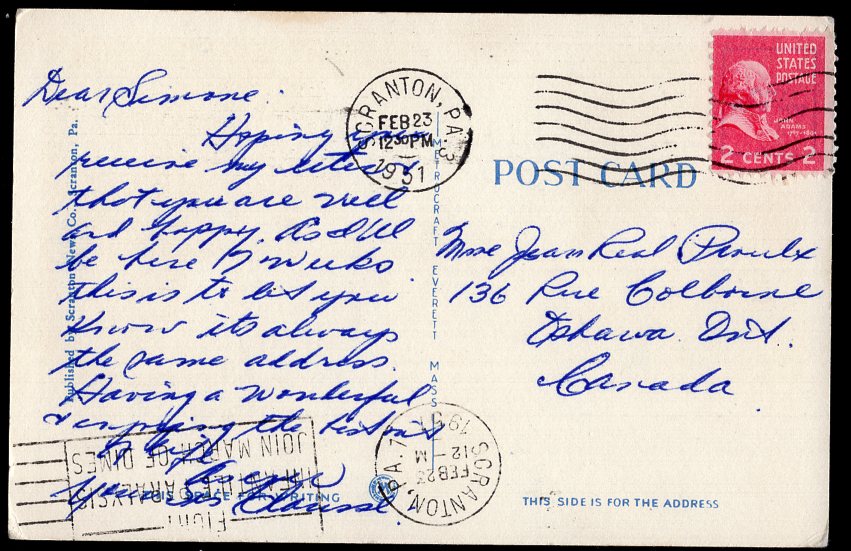 Dear Simone:
Hoping you
receive my letter &
that you are well
and happy. As I'll
be here 7 weeks
this is to let you
know its always
the same address.
Having a wonderful
& enjoying the
of life.
SCRANTON, PA. 3
FEB 23
12 30 PM
1951
UNITED
STATES
POSTAGE
JOHN
ADAMS
1797-1801
2 CENTS 2
POST CARD
Mme Jean Réal Proulx
136 Rue Colborne
Oshawa Ont.
Canada
Published by Scranton News Co., Scranton, Pa.
METROCRAFT EVERETT MASS
FIGHT
INFANTILE PARALYSIS
JOIN MARCH OF DIMES
SCRANTON, PA. 7
FEB 23
12 - M
1951
THIS SPACE FOR WRITING
THIS SIDE IS FOR THE ADDRESS